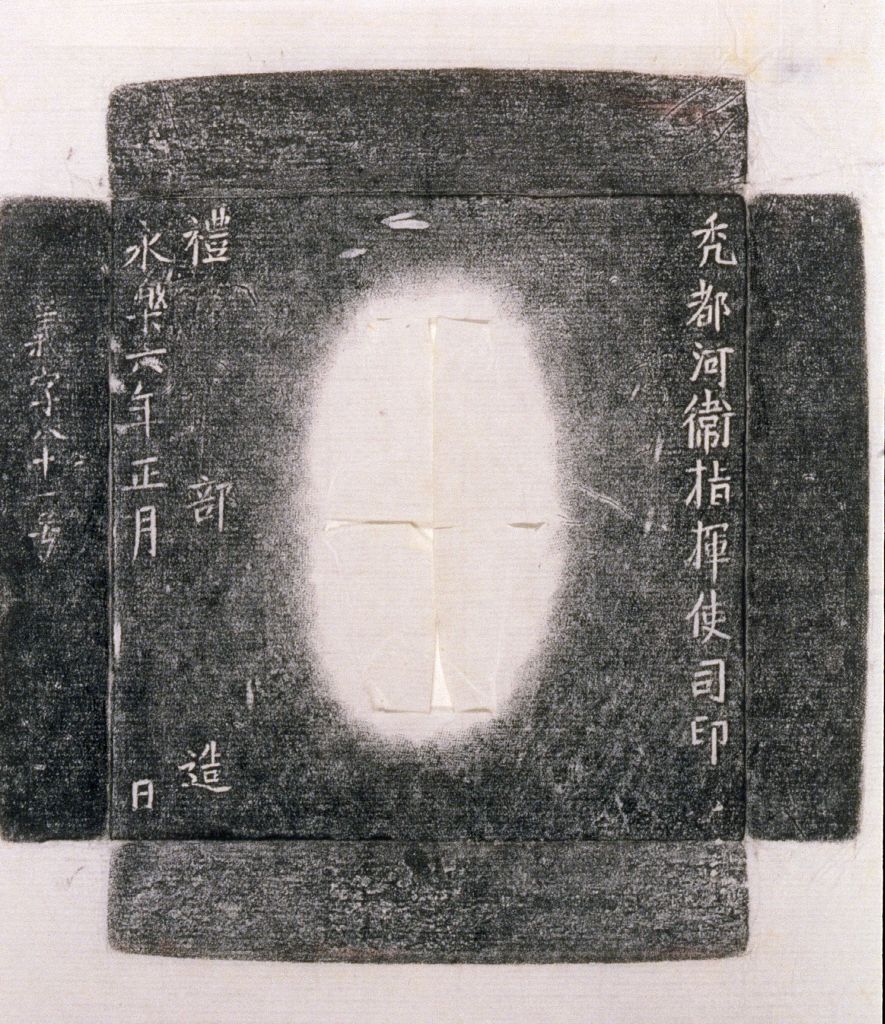 禿都河衞指揮使司印
禮部造
永樂六年正月 日
字八十一号